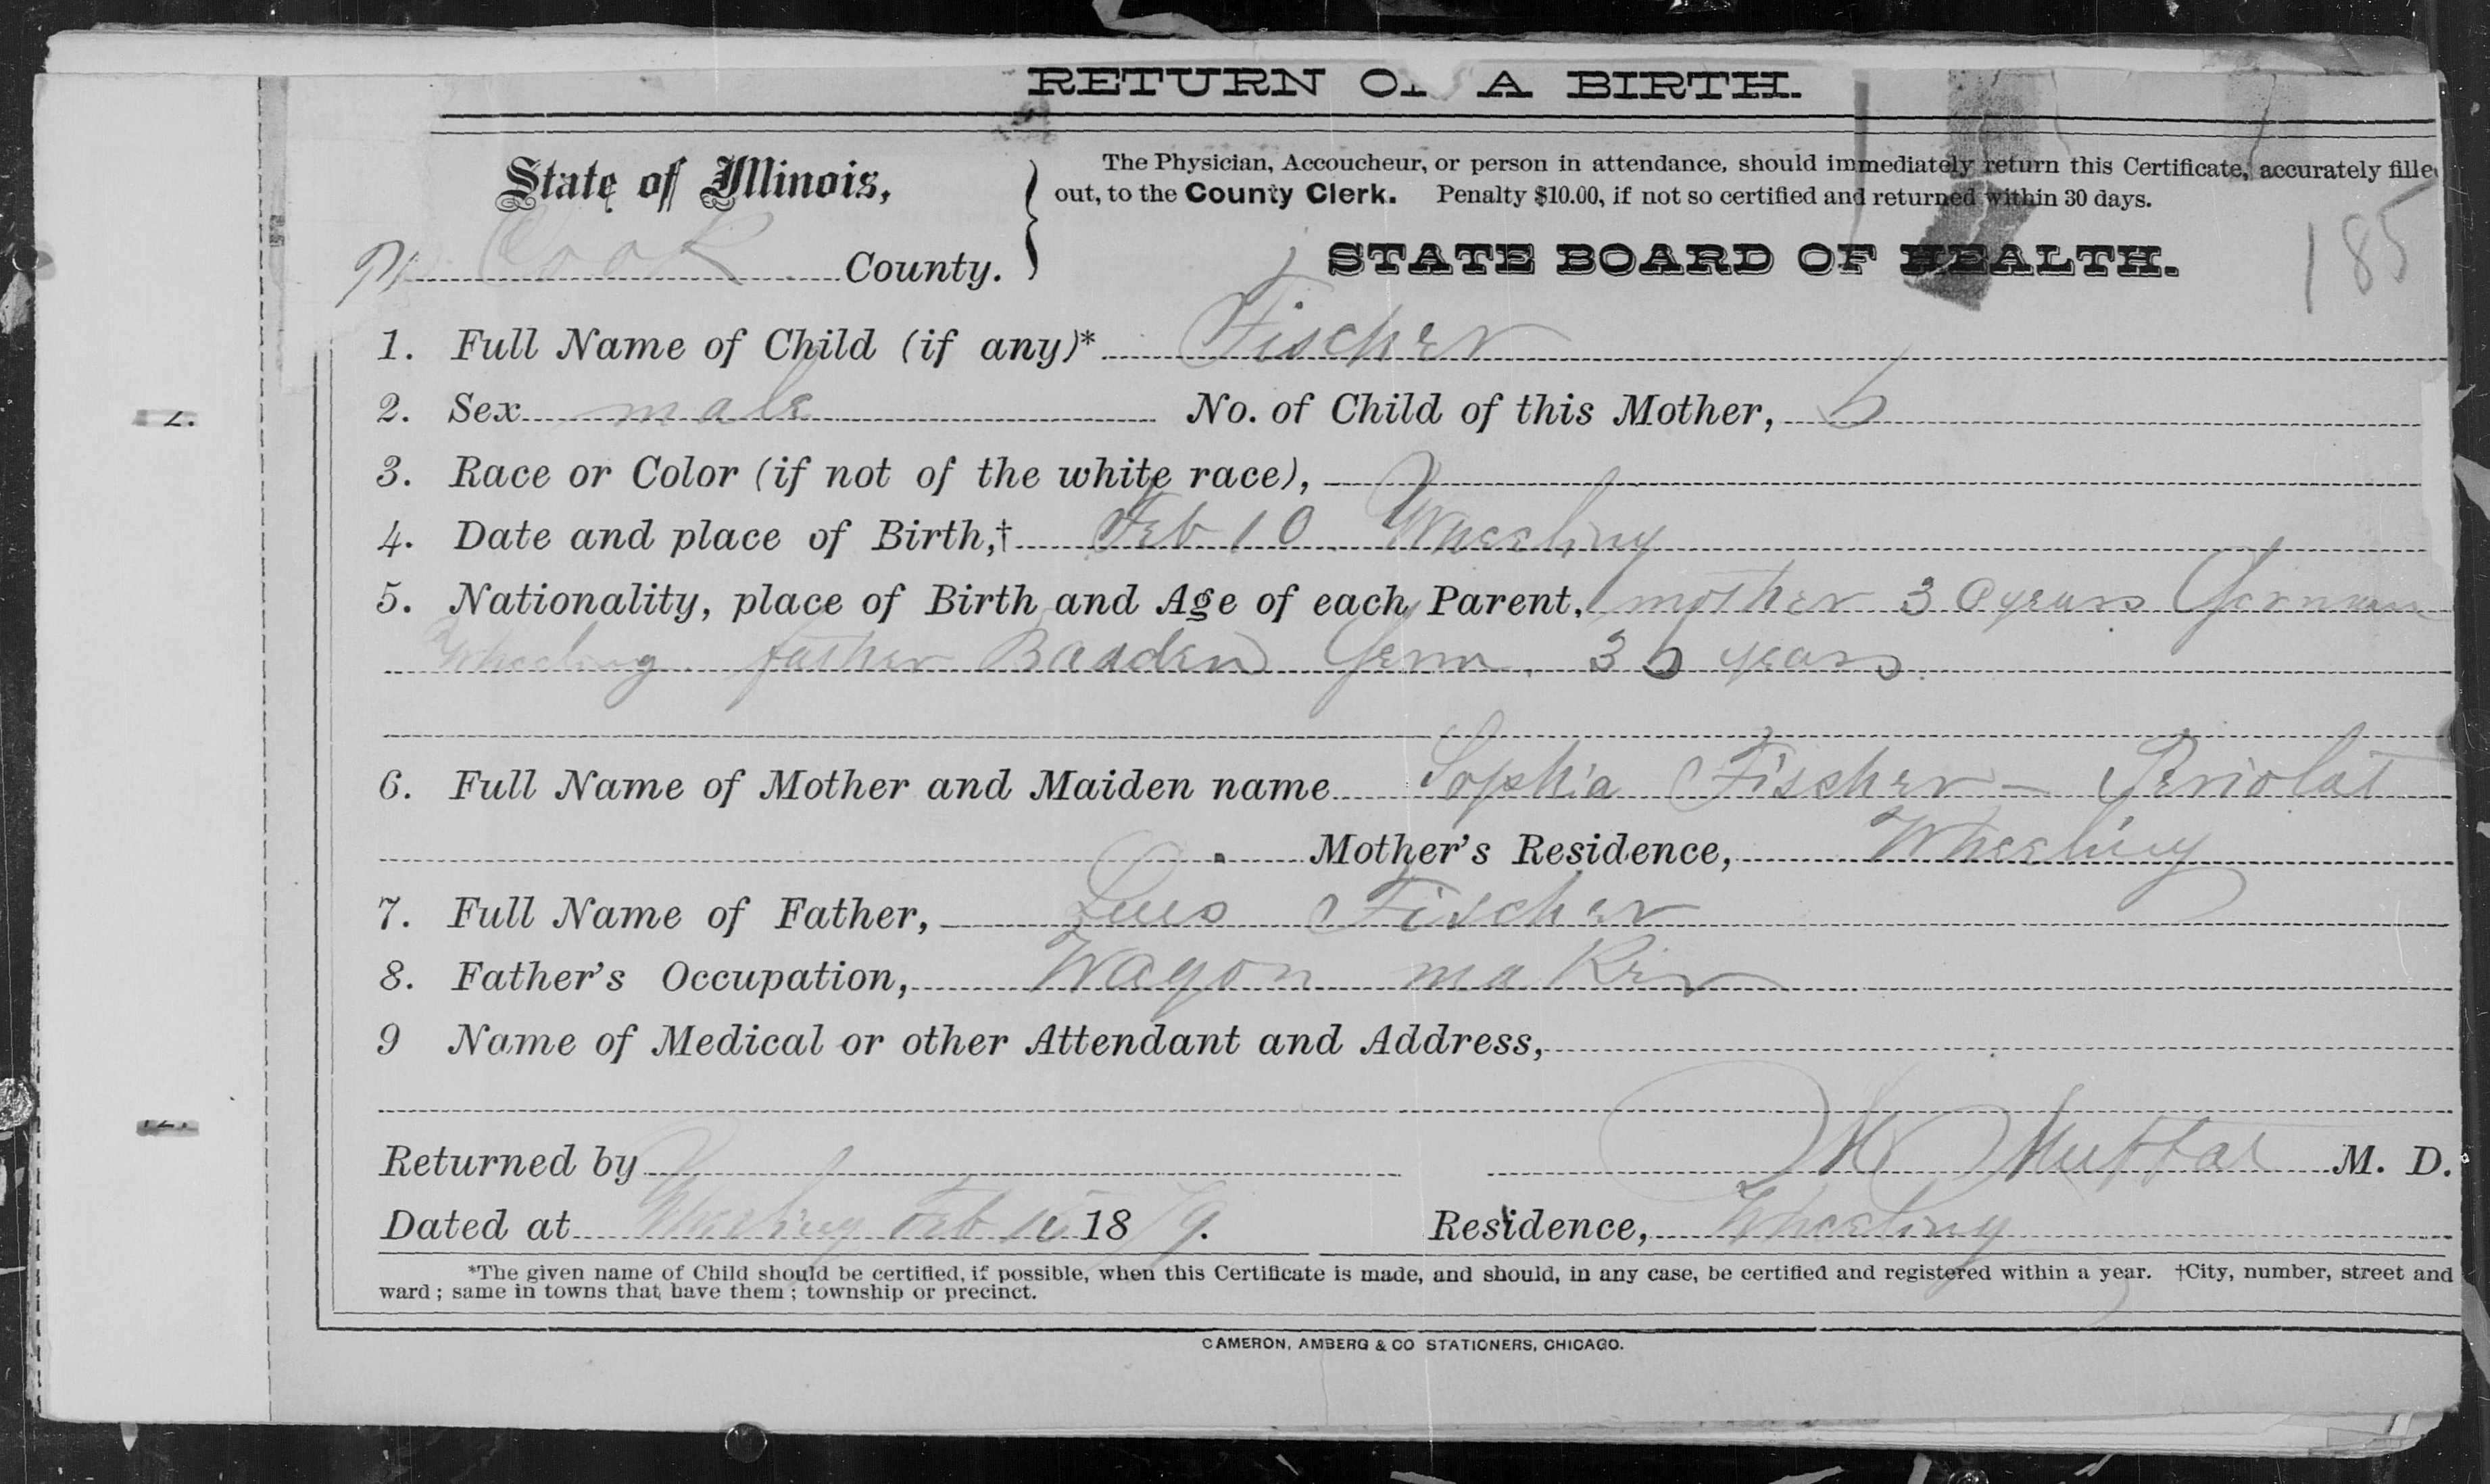 RETURN OF A BIRTH.
State of Illinois,
Cook County.
The Physician, Accoucheur, or person in attendance, should immediately return this Certificate, accurately fille
out, to the County Clerk. Penalty $10.00, if not so certified and returned within 30 days.
STATE BOARD OF HEALTH.
185
1. Full Name of Child (if any)* Fischer
2. Sex male No. of Child of this Mother,
3. Race or Color (if not of the white race),
4. Date and place of Birth,† Feb 10 Wheeling
5. Nationality, place of Birth and Age of each Parent, mother 30 years German
Wheeling father Baaden Germ. years.
6. Full Name of Mother and Maiden name Sophia Fischer – Periolat
Mother's Residence, Wheeling
7. Full Name of Father, Fischer
8. Father's Occupation, Wagon maker
9 Name of Medical or other Attendant and Address,
Returned by M. D.
Dated at Wheeling Feb 1879. Residence, Wheeling
*The given name of Child should be certified, if possible, when this Certificate is made, and should, in any case, be certified and registered within a year. †City, number, street and
ward; same in towns that have them; township or precinct.
CAMERON, AMBERG & CO STATIONERS, CHICAGO.